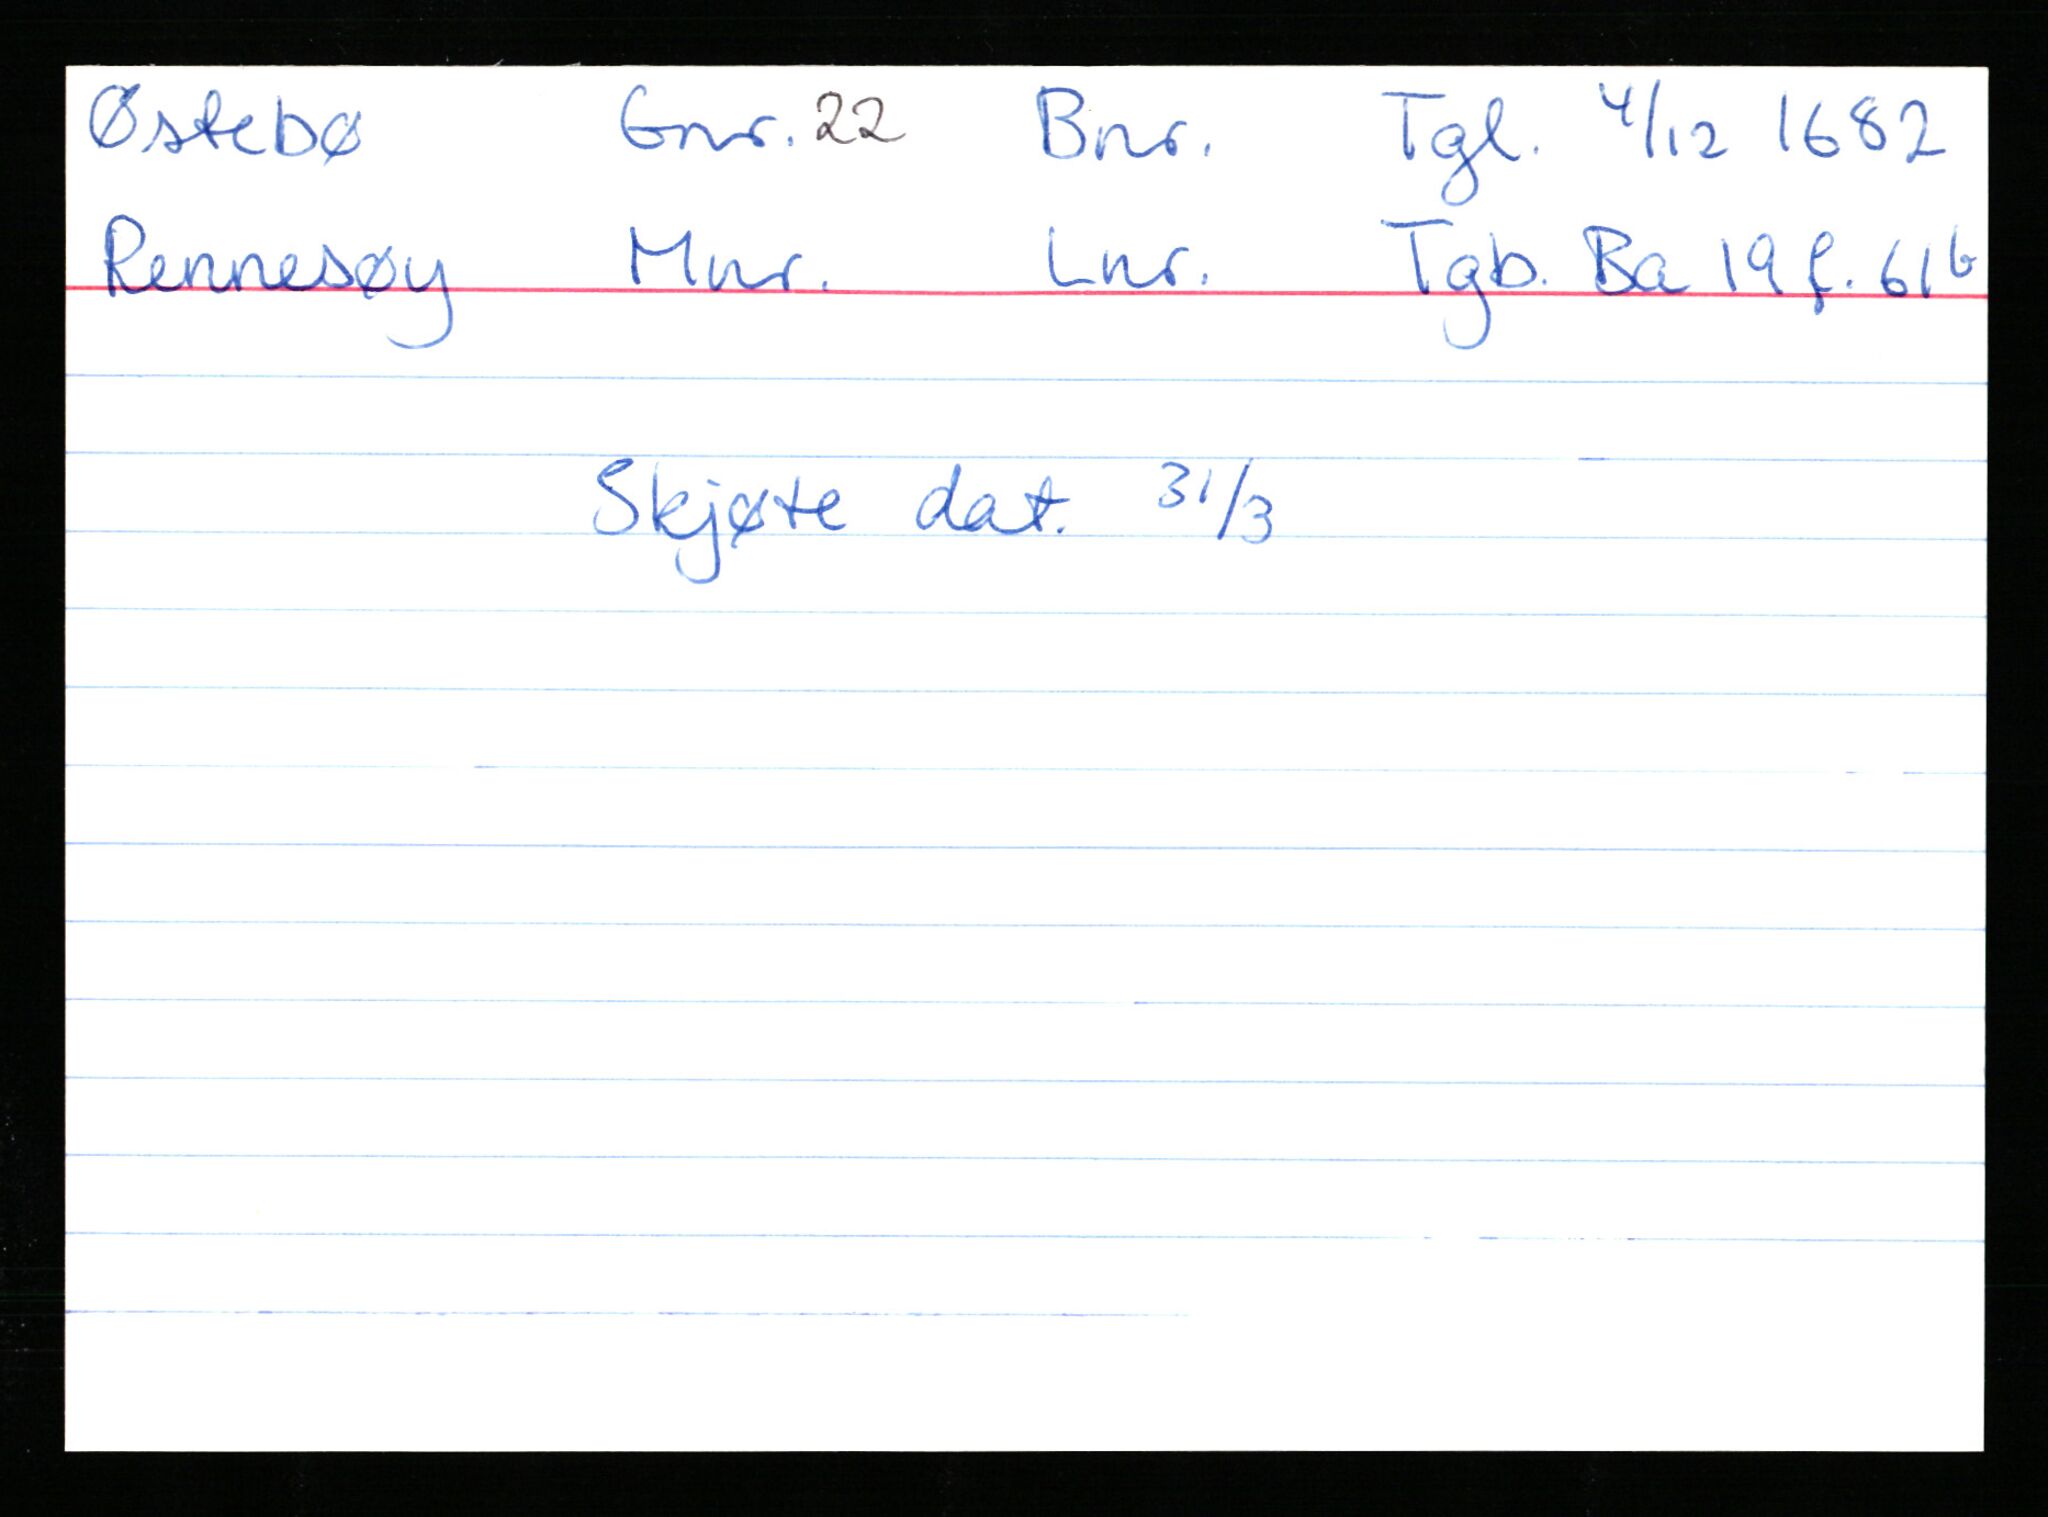 Østebø Gnr. 22 Bnr. Tgl. 4/12 1682
Rennesøy Mnr. Lnr. Tgb. Ba 19 f. 61b
Skjøte dat. 31/3